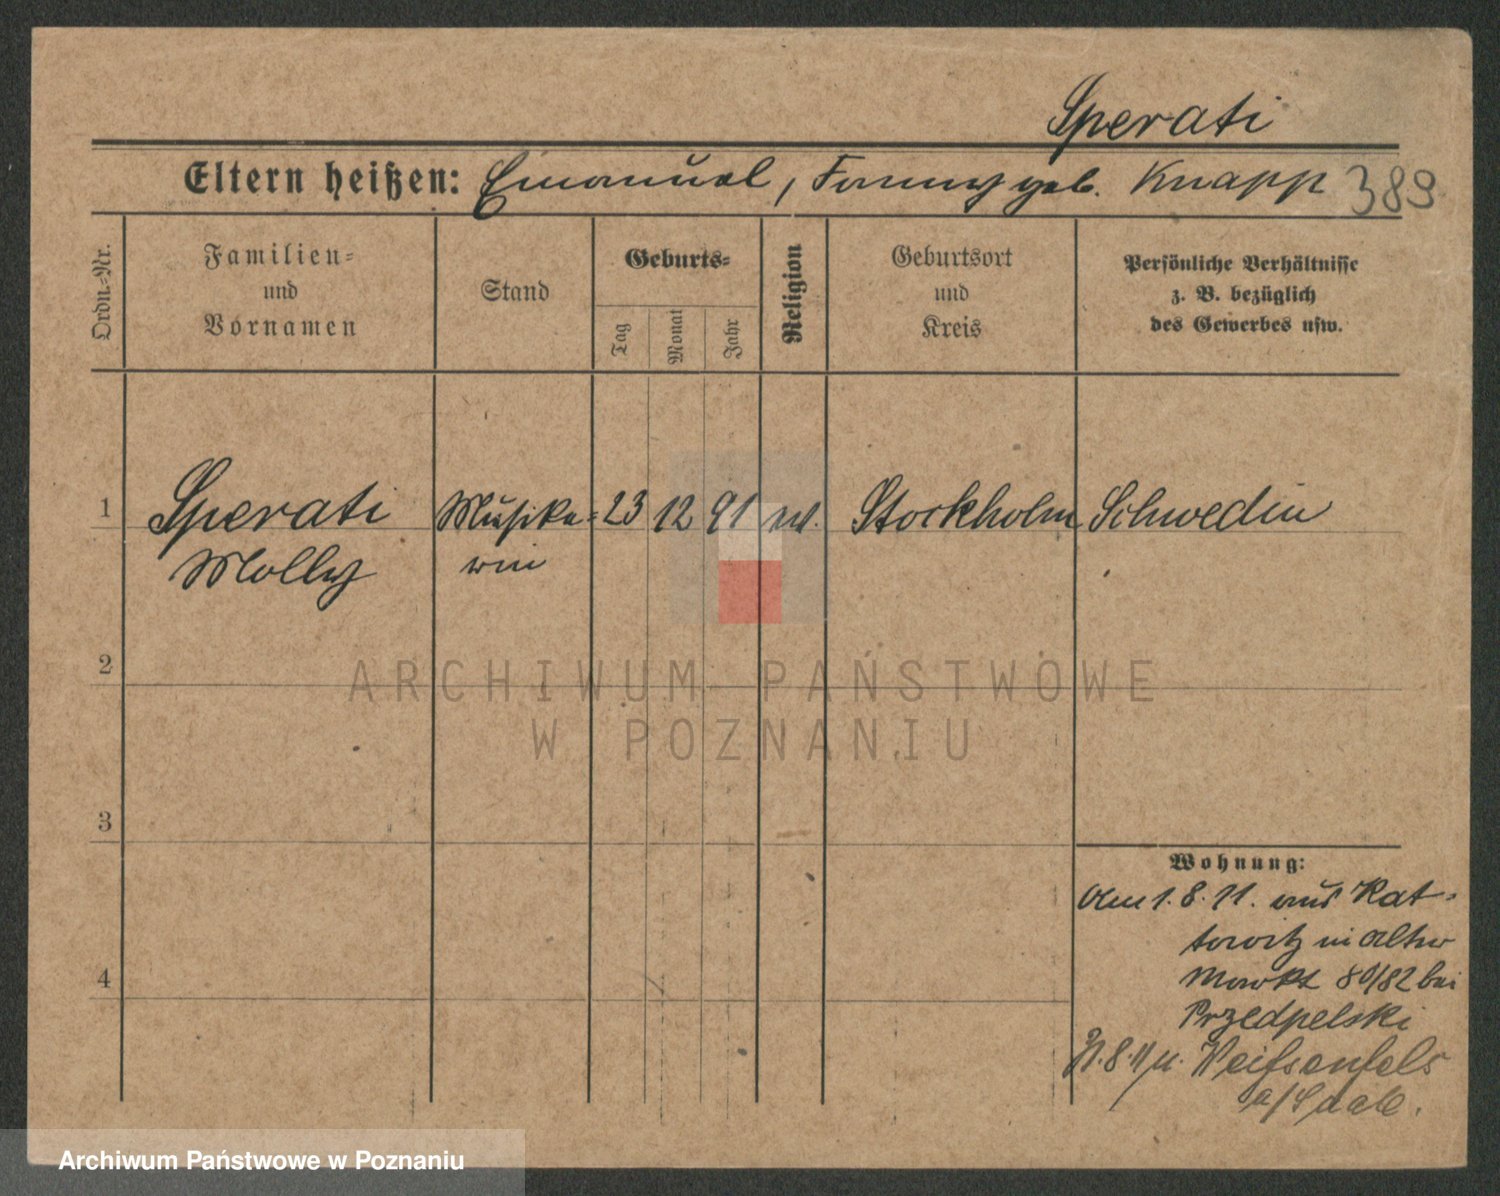 Sperati
Eltern heißen: Emanuel, Fanny geb. Knapp 389
Ordn.-Nr.
Familien-
und
Vornamen
Stand
Geburts-
Tag
Monat
Jahr
Religion
Geburtsort
und
Kreis
Persönliche Verhältnisse
z. B. bezüglich
des Gewerbes usw.
1 Sperati Musike- 23 12 91 Stockholm Schweden
Molly rin
2
ARCHIWUM PAŃSTWOWE
W POZNANIU
3
Wohnung:
Am 1.8.11. aus Kat-
towitz in Alter
4
Markt 80/82 bei
Przedpelski
.8.11 n. Weißenfels
a/Saale.
Archiwum Państwowe w Poznaniu